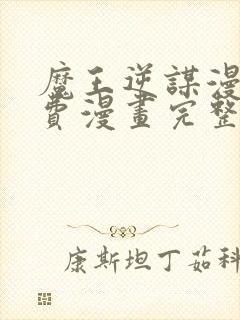 魔王逆謀漫
費漫畫完整
康斯坦丁茹科